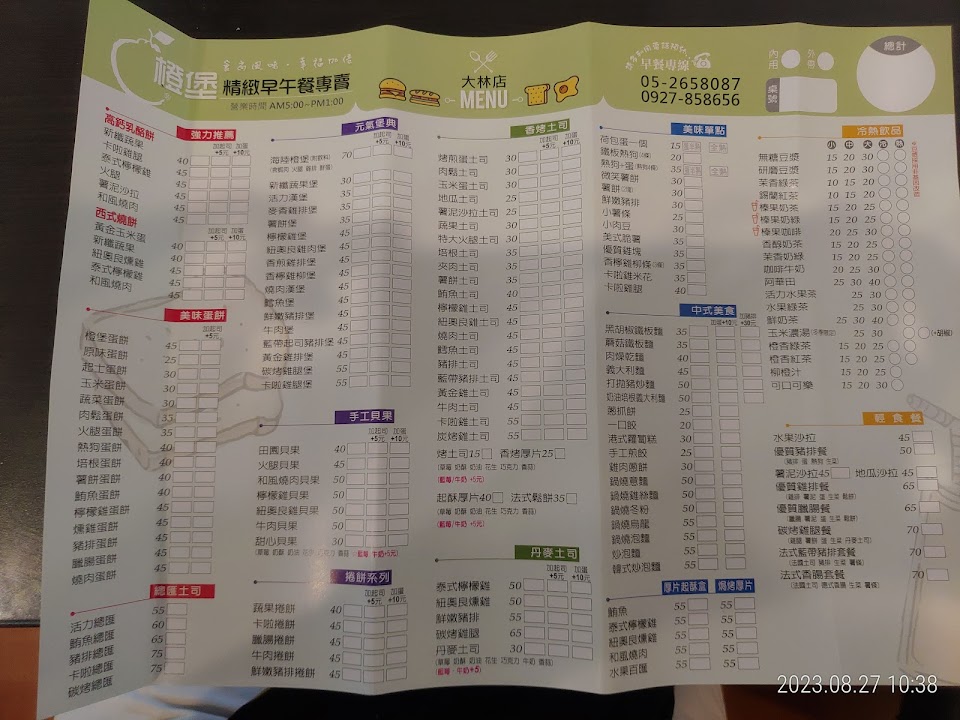 橙堡
精緻早午餐專賣
營業時間 AM5:00~PM1:00
大林店
MENU
早餐專線
05-2658087
0927-858656
內用
外帶
桌號
總計
高鈣乳酪餅
強力推薦
加起司+5元 加蛋+10元
新纖蔬果 40
卡啦雞腿 45
泰式檸檬雞 45
火腿 45
薯泥沙拉 45
和風燒肉 45
西式燒餅
加起司+5元 加蛋+10元
黃金玉米蛋 40
新纖蔬果 45
紐奧良燻雞 45
泰式檸檬雞 45
和風燒肉 45
美味蛋餅
加起司+5元
橙堡蛋餅 45
原味蛋餅 25
起士蛋餅 30
玉米蛋餅 30
蔬菜蛋餅 30
肉鬆蛋餅 30
火腿蛋餅 35
熱狗蛋餅 35
培根蛋餅 40
薯餅蛋餅 40
鮪魚蛋餅 40
檸檬雞蛋餅 45
燻雞蛋餅 45
豬排蛋餅 45
臘腸蛋餅 45
燒肉蛋餅 45
總匯土司
活力總匯 55
鮪魚總匯 60
豬排總匯 65
卡啦總匯 75
碳烤總匯 75
元氣堡典
加起司+5元 加蛋+10元
海陸橙堡(附飲料) 70
新纖蔬果堡 30
活力漢堡 35
麥香雞排堡 35
薯餅堡 35
檸檬雞堡 45
紐奧良雞肉堡 45
香煎雞排堡 45
香檸雞堡 45
燒肉漢堡 45
鱈魚堡 45
鮮嫩豬排堡 45
牛肉堡 45
藍帶起司豬排堡 45
黃金雞排堡 45
碳烤雞腿堡 55
卡啦雞腿堡 55
手工貝果
加起司+5元 加蛋+10元
田園貝果 40
火腿貝果 45
和風燒肉貝果 50
檸檬雞貝果 50
紐奧良雞貝果 50
牛肉貝果 50
甜心貝果 30
(草莓 奶酥 奶油 花生 巧克力 香蒜) (藍莓/牛奶+5元)
捲餅系列
加起司+5元 加蛋+10元
蔬果捲餅 40
卡啦捲餅 45
臘腸捲餅 45
牛肉捲餅 45
鮮嫩豬排捲餅 45
香烤土司
加起司+5元 加蛋+10元
烤煎蛋土司 30
肉鬆土司 30
玉米蛋土司 30
地瓜土司 35
薯泥沙拉土司 35
蔬果土司 30
特大火腿土司 30
培根土司 35
夾肉土司 35
薯餅土司 35
鮪魚土司 40
檸檬雞土司 45
紐奧良雞土司 45
燒肉土司 45
鱈魚土司 45
豬排土司 45
藍帶豬排土司 45
黃金雞土司 45
牛肉土司 45
卡啦雞土司 55
炭烤雞土司 55
烤土司15 香烤厚片25
(草莓 奶酥 奶油 花生 巧克力 香蒜)
(藍莓/牛奶 +5元)
起酥厚片40 法式鬆餅35
(草莓 奶酥 奶油 花生 巧克力 香蒜)
(藍莓/牛奶 +5元)
丹麥土司
加起司+5元 加蛋+10元
泰式檸檬雞 50
紐奧良燻雞 50
鮮嫩豬排 50
碳烤雞腿 65
丹麥土司 30
(草莓 奶酥 奶油 花生 巧克力 牛奶 香蒜)
(藍莓/牛奶+5)
美味單點
荷包蛋一個 15 半熟 全熟
鐵板熱狗 20
熱狗+蛋 35 半熟 全熟
微笑薯餅 30
薯餅 30
鮮嫩豬排 30
小薯條 25
小肉豆 30
美式脆薯 35
優質雞塊 35
香檸雞柳條 35
卡啦雞米花 35
卡啦雞腿 40
中式美食
黑胡椒鐵板麵 35
蘑菇鐵板麵 35
肉燥乾麵 40
義大利麵 45
打拋豬炒麵 50
奶油培根義大利麵 50
蔥抓餅 25
一口餃 20
港式蘿蔔糕 30
手工煎餃 30
雞肉蔥餅 30
鍋燒意麵 50
鍋燒雞絲麵 50
鍋燒冬粉 50
鍋燒烏龍 55
鍋燒泡麵 55
炒泡麵 55
韓式炒泡麵 55
厚片起酥盒 焗烤厚片
鮪魚 55 55
泰式檸檬雞 55 55
紐奧良燻雞 55 55
和風燒肉 55 55
水果百匯 55 55
冷熱飲品
小 中 大 冷 熱
無糖豆漿 15 20 30
研磨豆漿 15 20 30
茉香綠茶 10 15 20
錫蘭紅茶 10 15 20
榛果奶茶 15 20 25
榛果奶綠 15 20 25
榛果咖啡 15 20 25
香醇奶茶 15 20 25
茉香奶綠 15 20 25
咖啡牛奶 15 25 30
阿華田 25 30 40
活力水果茶 25 30
水果綠茶 25 30
鮮奶茶 25 30 40
玉米濃湯 25 30 (+胡椒)
橙香綠茶 15 20 25
橙香紅茶 15 20 25
柳橙汁 15 20 25
可口可樂 15 20 30
輕食餐
水果沙拉 45
優質豬排餐 50
(豬排 蛋 熱狗 生菜)
薯泥沙拉45 地瓜沙拉 45
優質雞排餐 65
(雞排 薯泥 蛋 生菜 鬆餅)
優質臘腸餐 65
(臘腸 薯泥 蛋 生菜 鬆餅)
碳烤雞腿餐 70
(雞腿 薯餅 蛋 生菜 丹麥土司)
法式藍帶豬排套餐 70
(法國土司 豬排 生菜 薯條)
法式香腸套餐 70
(法國土司 德式香腸 生菜 薯條)
2023.08.27 10:38